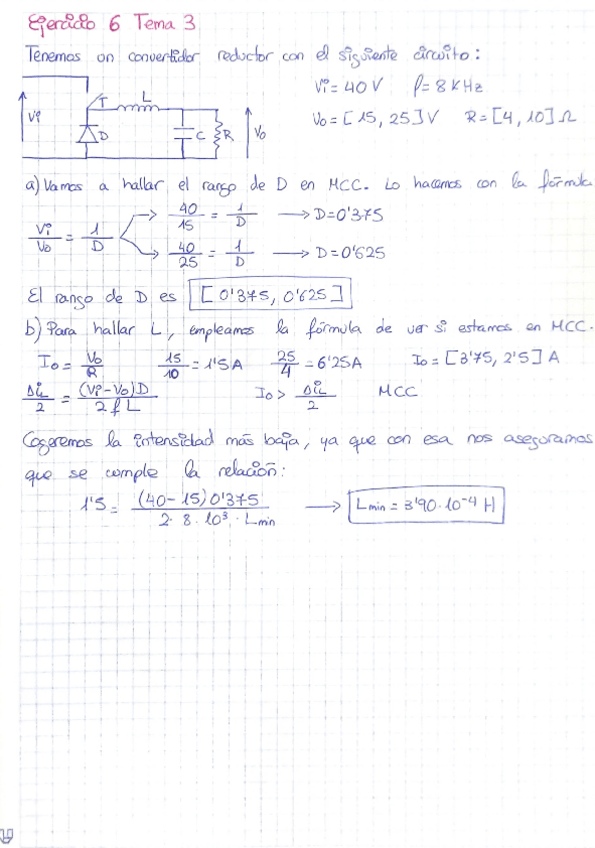 Ejercicio 6 Tema 3
Tenemos un convertidor reductor con el siguiente circuito:
Vi = 40 V f = 8 kHz
Vo = [15, 25] V R = [4, 10] Ω
Vi T L D C R Vo
a) Vamos a hallar el rango de D en MCC. Lo hacemos con la fórmula
Vi/Vo = 1/D → 40/15 = 1/D → D = 0'375
→ 40/25 = 1/D → D = 0'625
El rango de D es [0'375, 0'625]
b) Para hallar L, empleamos la fórmula de ver si estamos en MCC.
Io = Vo/R 15/10 = 1'5 A 25/4 = 6'25 A Io = [3'75, 2'5] A
ΔiL/2 = (Vi - Vo) D / 2 f L Io > ΔiL/2 MCC
Cogeremos la intensidad más baja, ya que con esa nos aseguramos
que se cumple la relación:
1'5 = (40 - 15) 0'375 / 2 · 8 · 10³ · Lmin → Lmin = 3'90 · 10⁻⁴ H